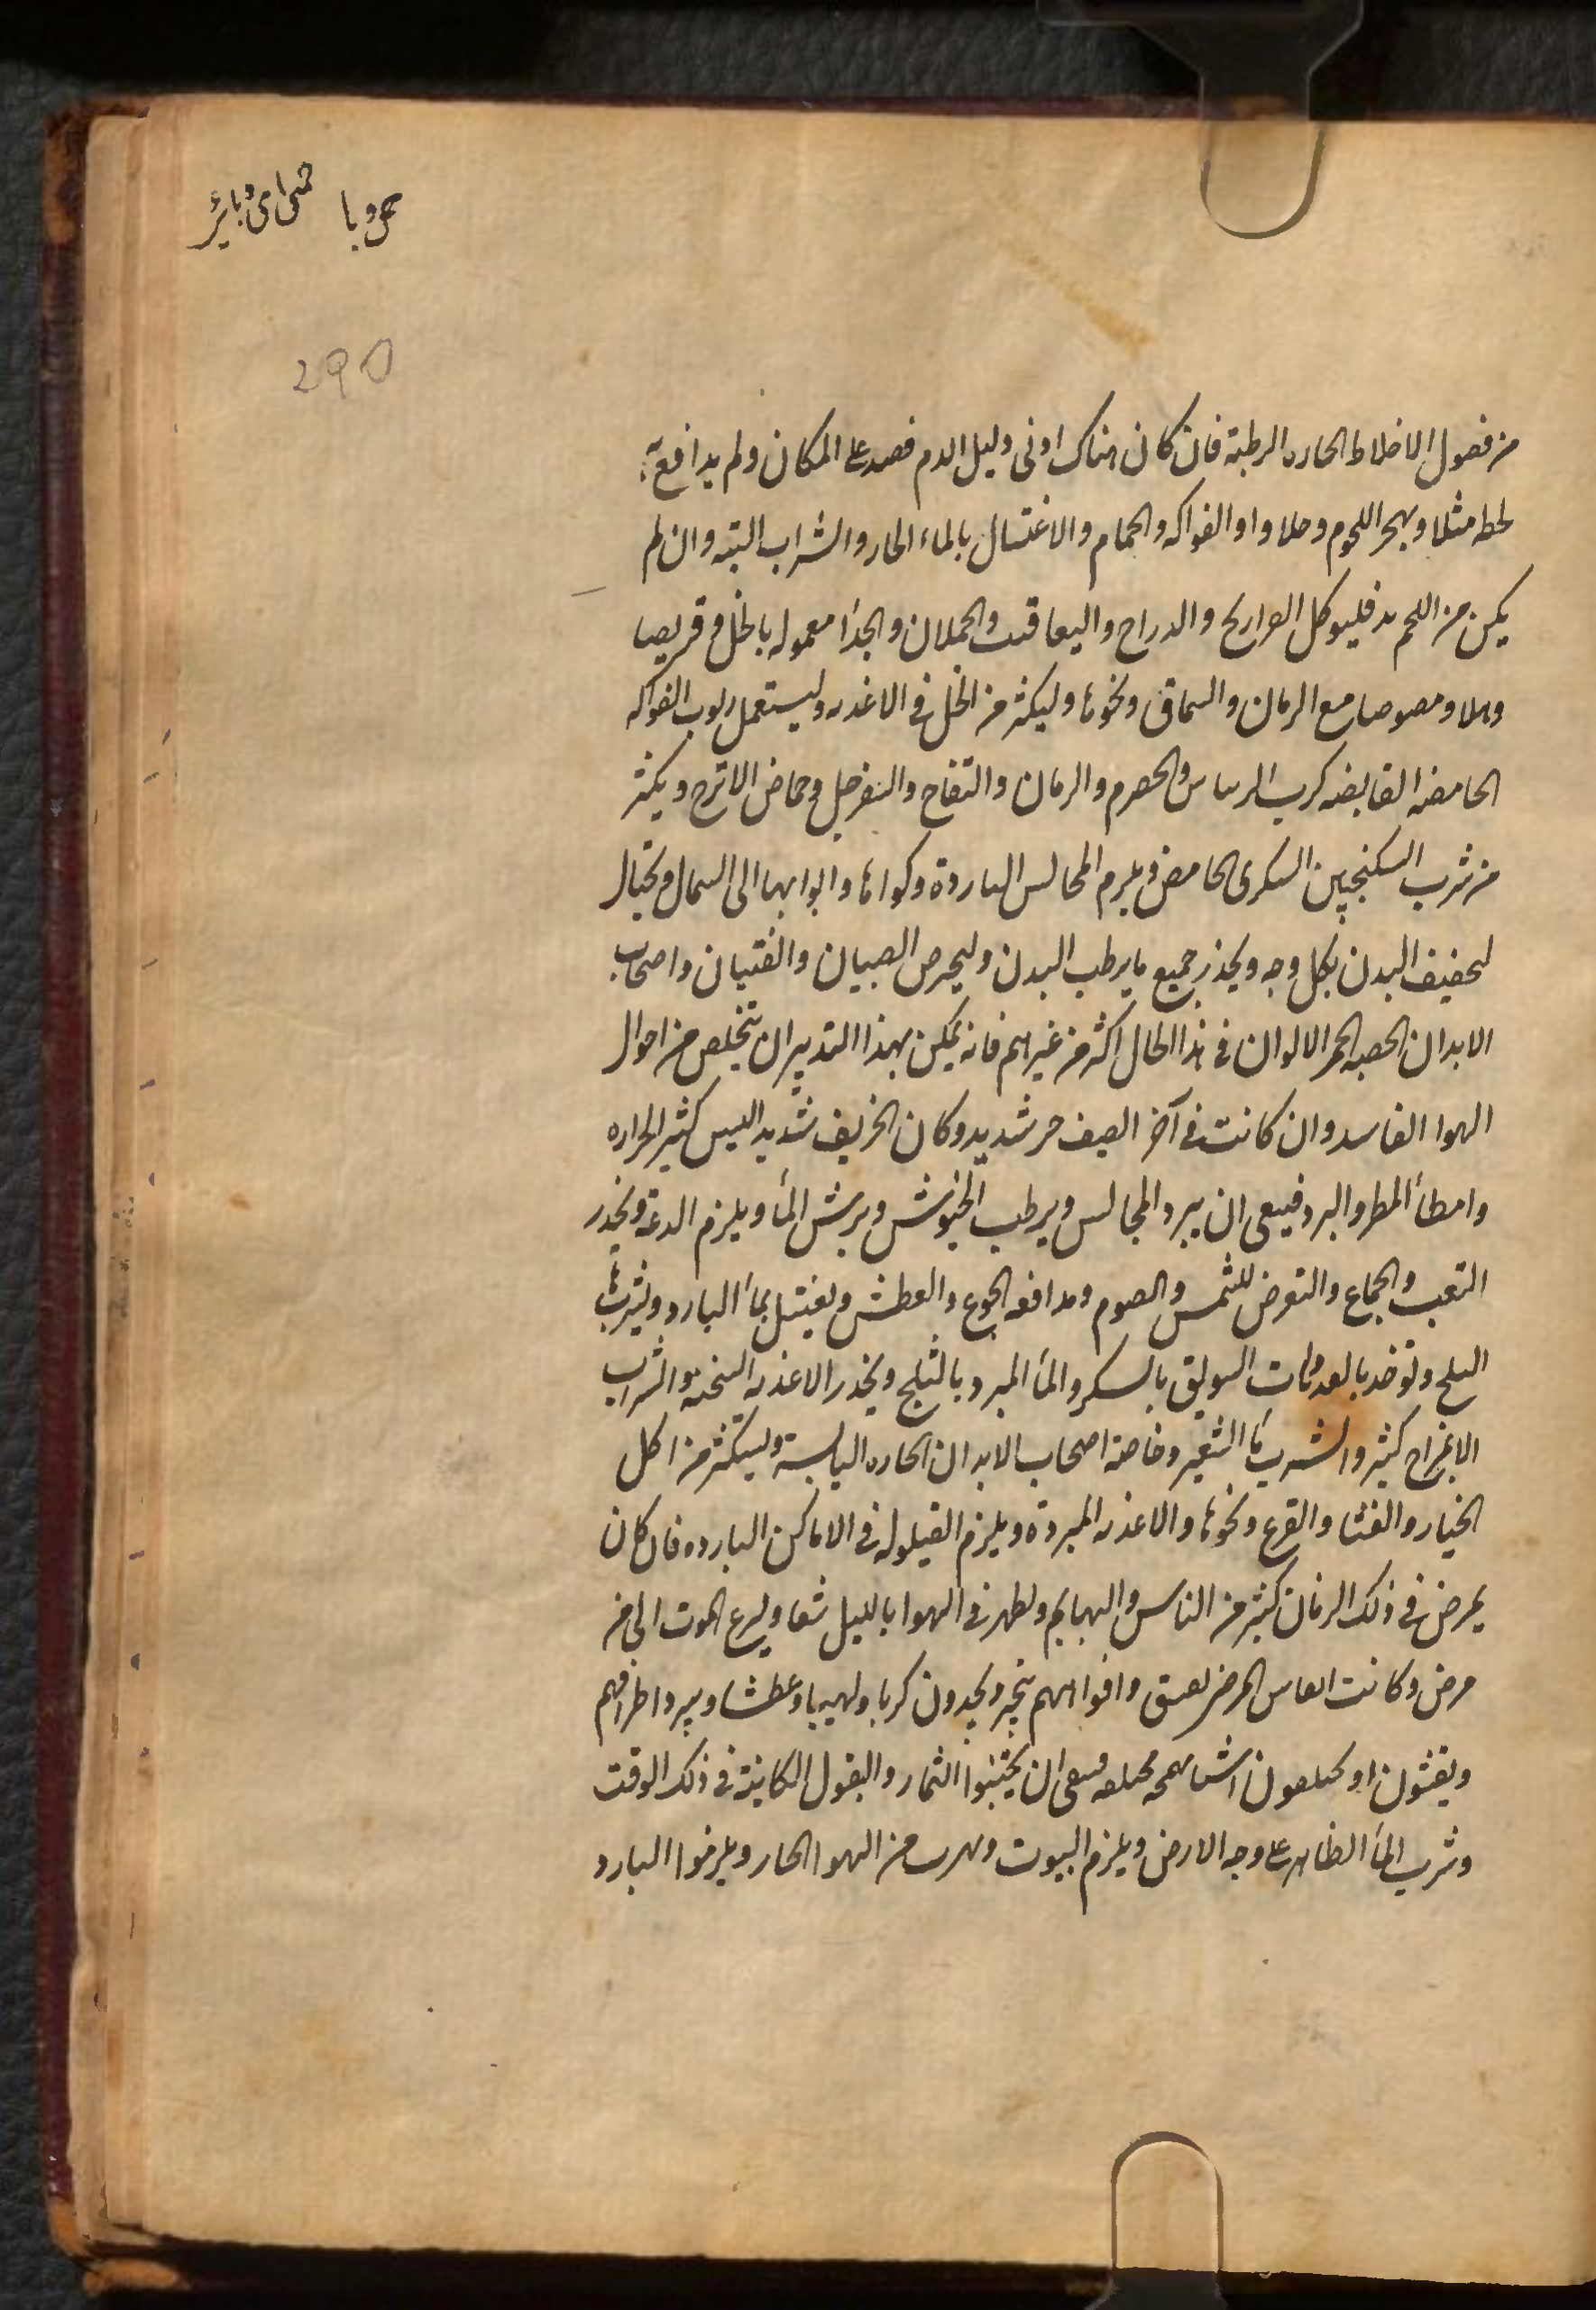 وبا حمى وبائى
290
من فضول الاخلاط الحاره الرطبة فان كان هناك ادنى دليل الدم فصد على المكان ولم يدافع به
لحطه مثلا ويهجر اللحوم وحلاوا والفواكه والحمام والاغتسال بالماء الحار والشراب البته وان لم
يكن من اللحم بد فليوكل الفراريح والدراج واليعاقيب والحملان والجدا معموله بالخل وقريصا
وهلا ومصوصا مع الرمان والسماق ونحوها وليكثر من الخل في الاغذيه وليستعمل ربوب الفواكه
الحامضه القابضه كرب الريباس والحصرم والرمان والتفاح والسفرجل وحماض الاترج ويكثر
من شرب السكنجبين السكرى الحامض ويلزم المجالس الباردة وكواها وابوابها الى الشمال ويحتال
لتجفيف البدن بكل وجه ويحذر جميع ما يرطب البدن وليحرص الصبيان والفتيان واصحاب
الابدان الخصبه الحمر الالوان في هذا الحال اكثر من غيرهم فانه يمكن بهذا التدبير ان يتخلص من احوال
الهوا الفاسد وان كانت في آخر الصيف حر شديد وكان الخريف شديد اليبس كثير الحراره
وامطأ المطر والبرد فينبغى ان يبرد المجالس ويرطب الخيوش ويرش المأ ويلزم الدعة ويحذر
التعب والجماع والتعرض للشمس والصوم ومدافعه الجوع والعطش ويغتسل بمأ البارد ويشرب مأ
الثلج وتوخذ بالغدوات السويق بالسكر والمأ المبرد بالثلج ويحذر الاغذيه السخنه والشراب
الا بمزاج كثير والشرب مأ الشعير وخاصة اصحاب الابدان الحاره اليابسة وليكثر من اكل
الخيار والقثا والقرع ونحوها والاغذيه المبردة ويلزم القيلوله في الاماكن البارده فان كان
يمرض في ذلك الزمان كثير من الناس والبهايم ويظهر في الهوا بالليل شعا ويسرع الموت الى من
مرض وكانت انفاس المرضى وافواههم تبخر ويجدون كربا ولهيبا وعطشا ويبرد اطرافهم
ويقيئون او يختلفون اشيا سمجه مختلفه فينبغى ان يجتنبوا الثمار والبقول الكاينة في ذلك الوقت
وشرب المأ الظاهر على وجه الارض ويلزم البيوت ويهرب من الهوا الحار ويلزموا البارد